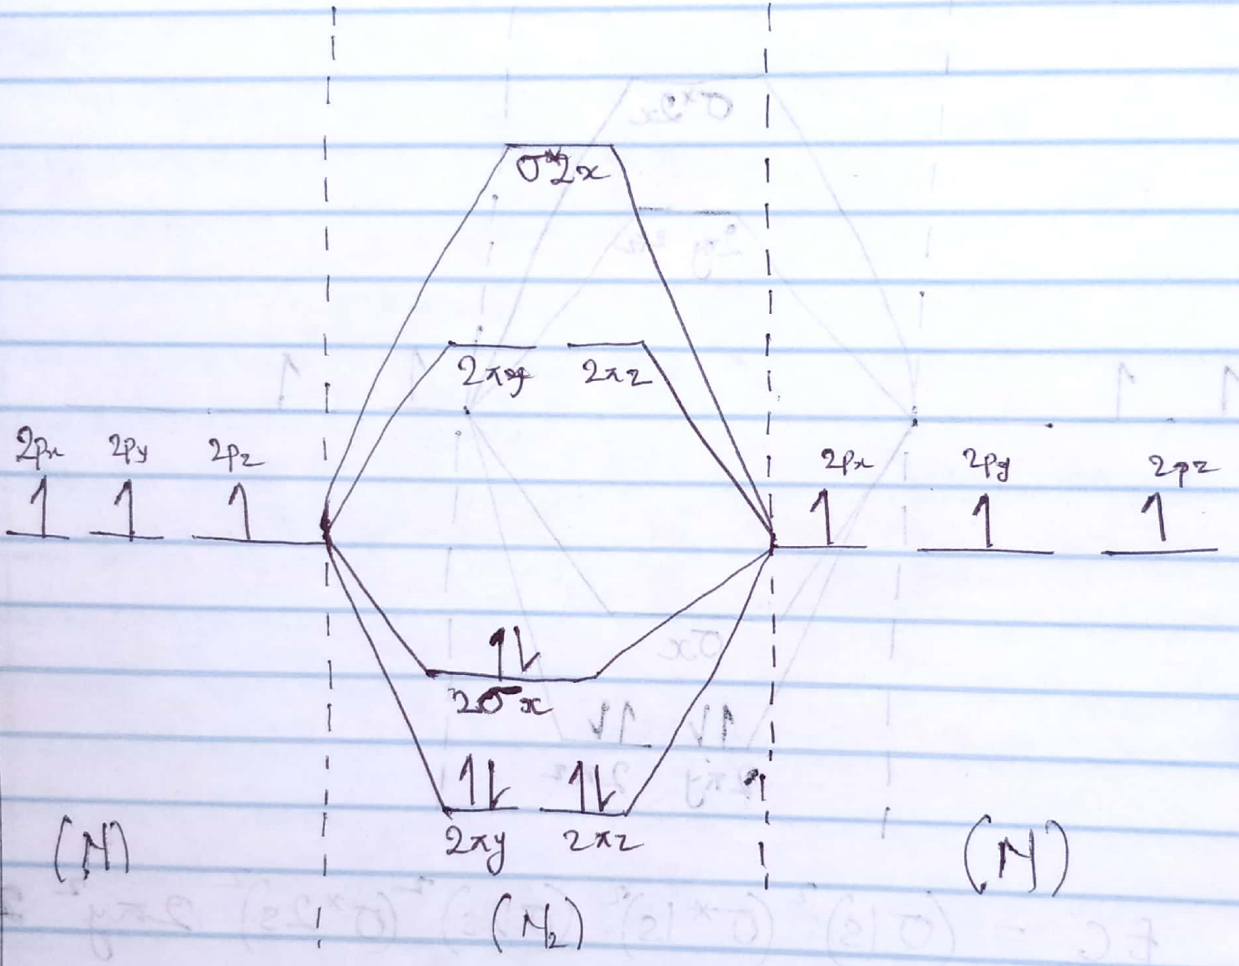 σ*2x
2πy 2πz
2px 2py 2pz 2px 2py 2pz
1 1 1 1 1 1
1⇂
2σx
1⇂ 1⇂
2πy 2πz
(N) (N)
(N₂)